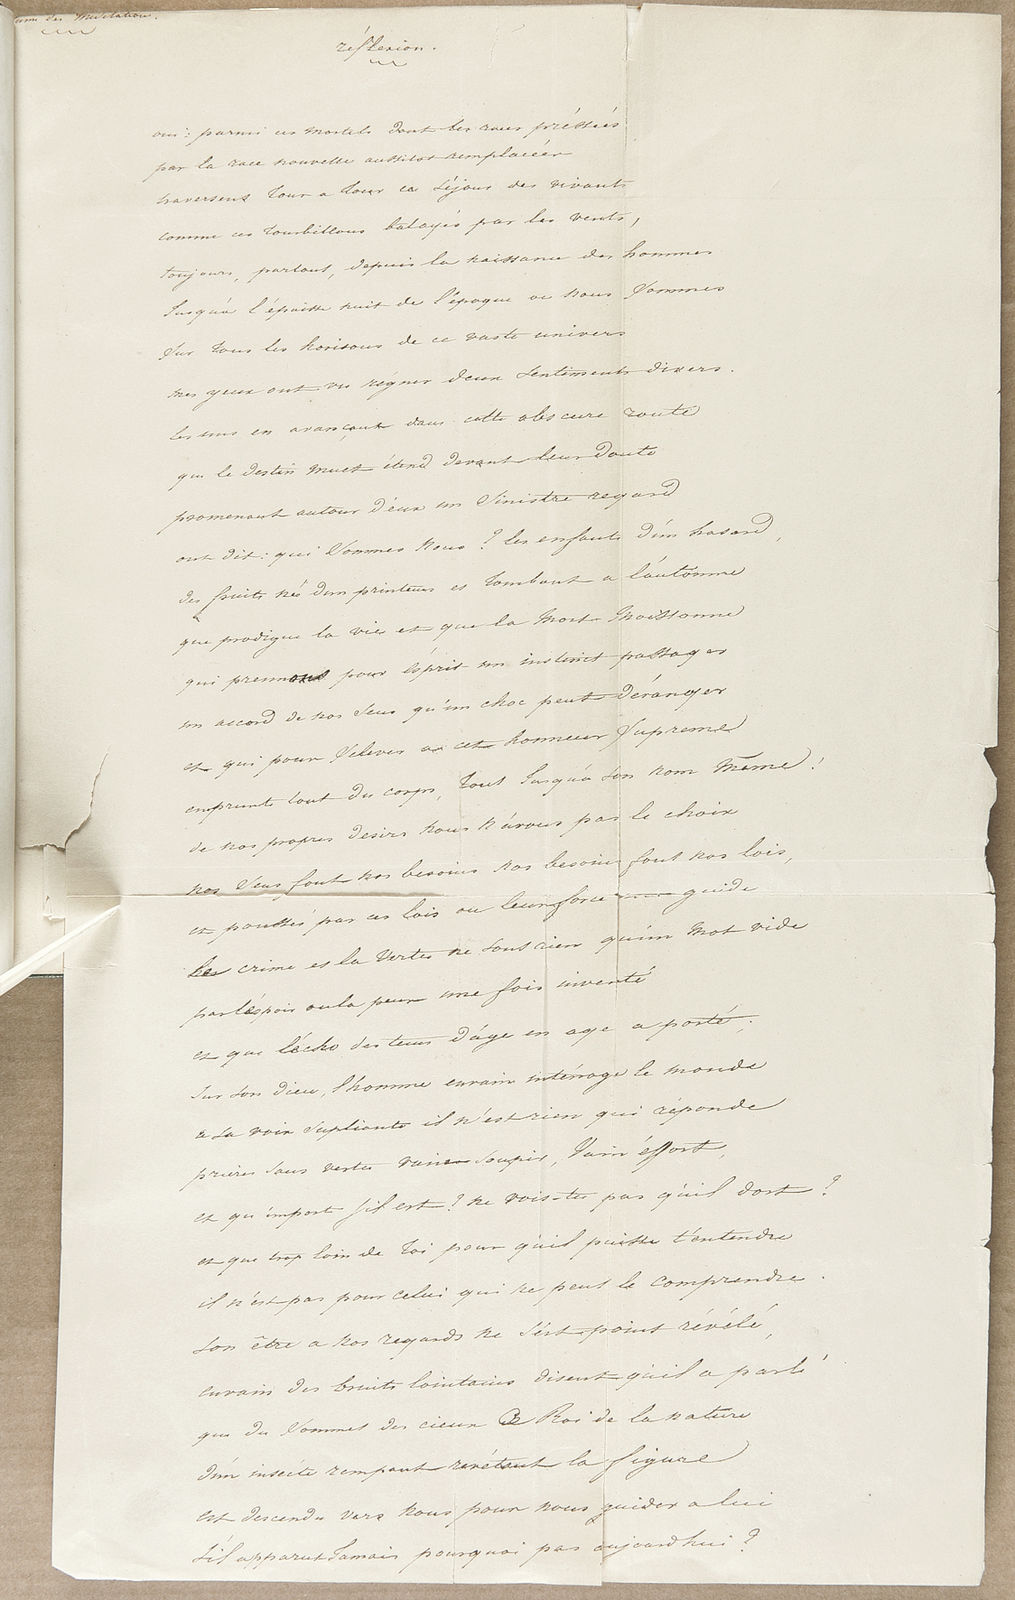 des Méditation.
réflexion.
oui: parmi ces mortels dont les races préssées
par la race nouvelle aussitot remplacées
traversent tour a tour ce séjour des vivants
comme ces tourbillons balayés par les vents,
toujours, partout, depuis la naissance des hommes
Jusqu'a l'épaisse nuit de l'époque ou nous sommes
sur tous les horisons de ce vaste univers
mes yeux ont vu régner deux sentiments divers.
les uns en avançant dans cette obscure route
que le destin muet étend devant leur doute
promenant autour d'eux un sinistre regard
ont dit: qui sommes nous? les enfants d'un hasard,
des fruits nés d'un printems et tombant a l'automne
que prodigue la vie et que la mort moissonne
qui prennons pour ésprit un instinct passager
un accord de nos sens qu'un choc peut déranger
et qui pour s'elever a cet honneur supreme
emprunte tout du corps, tout Jusqu'a son nom même!
de nos propres desirs nous n'avons pas le choix
nos sens font nos besoins nos besoins font nos lois,
et poussés par ces lois ou leur force guide
les crime et la vertu ne sont rien qu'un mot vide
par l'éspoir ou la peur une fois inventé
et que l'écho des tems d'age en age a porté;
sur son dieu, l'homme envain intérroge le monde
a sa voix supliante il n'est rien qui réponde
prieres sans vertu vain soupir, vain éffort,
et qu'importe s'il est? ne vois-tu pas qu'il dort?
et que trop loin de toi pour qu'il puisse t'entendre
il n'est pas pour celui qui ne peut le comprendre.
son être a nos regards ne s'est point révélé,
envain des bruits lointains disent qu'il a parlé
que du sommet des cieux ce Roi de la nature
d'un insecte rempant revétant la figure
est descendu vers nous pour nous guider a lui
s'il apparut Jamais pourquoi pas aujourd'hui?